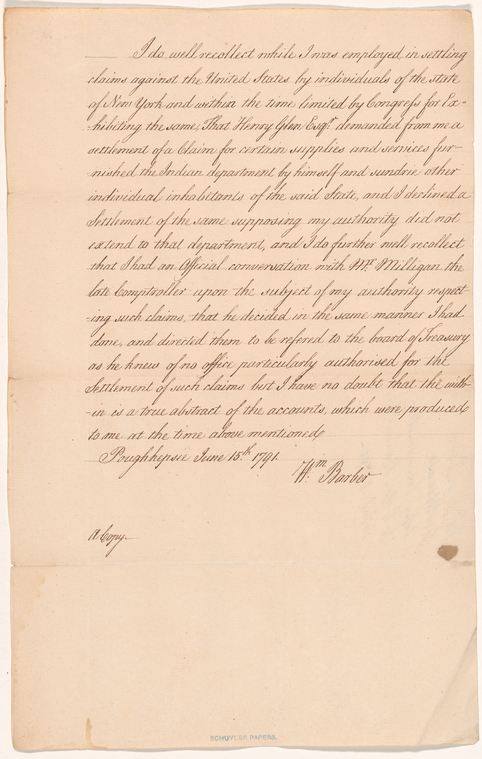 I do well recollect while I was employed in settling
claims against the United States by individuals of the state
of New York and within the time limited by Congress for Ex-
-hibiting the same, That Henry Glen Esqr. demanded from me a
settlement of a Claim for certain supplies and services fur-
nished the Indian department by himself and sundrie other
individual inhabitants of the said State, and I declined a
Settlement of the same supposing my authority did not
extend to that department, and I do further well recollect
that I had an Official conversation with Mr. Milligan the
late Comptroller upon the subject of my authority respect-
-ing such claims, that he decided in the same manner I had
done, and directed them to be refered to the board of Treasury
as he knew of no office particularly authorised for the
Settlement of such claims but I have no doubt that the with-
-in is a true abstract of the accounts, which were produced
to me at the time above mentioned
Poughkepsie June 15th. 1791
Wm. Barber
a Copy
SCHUYLER PAPERS.